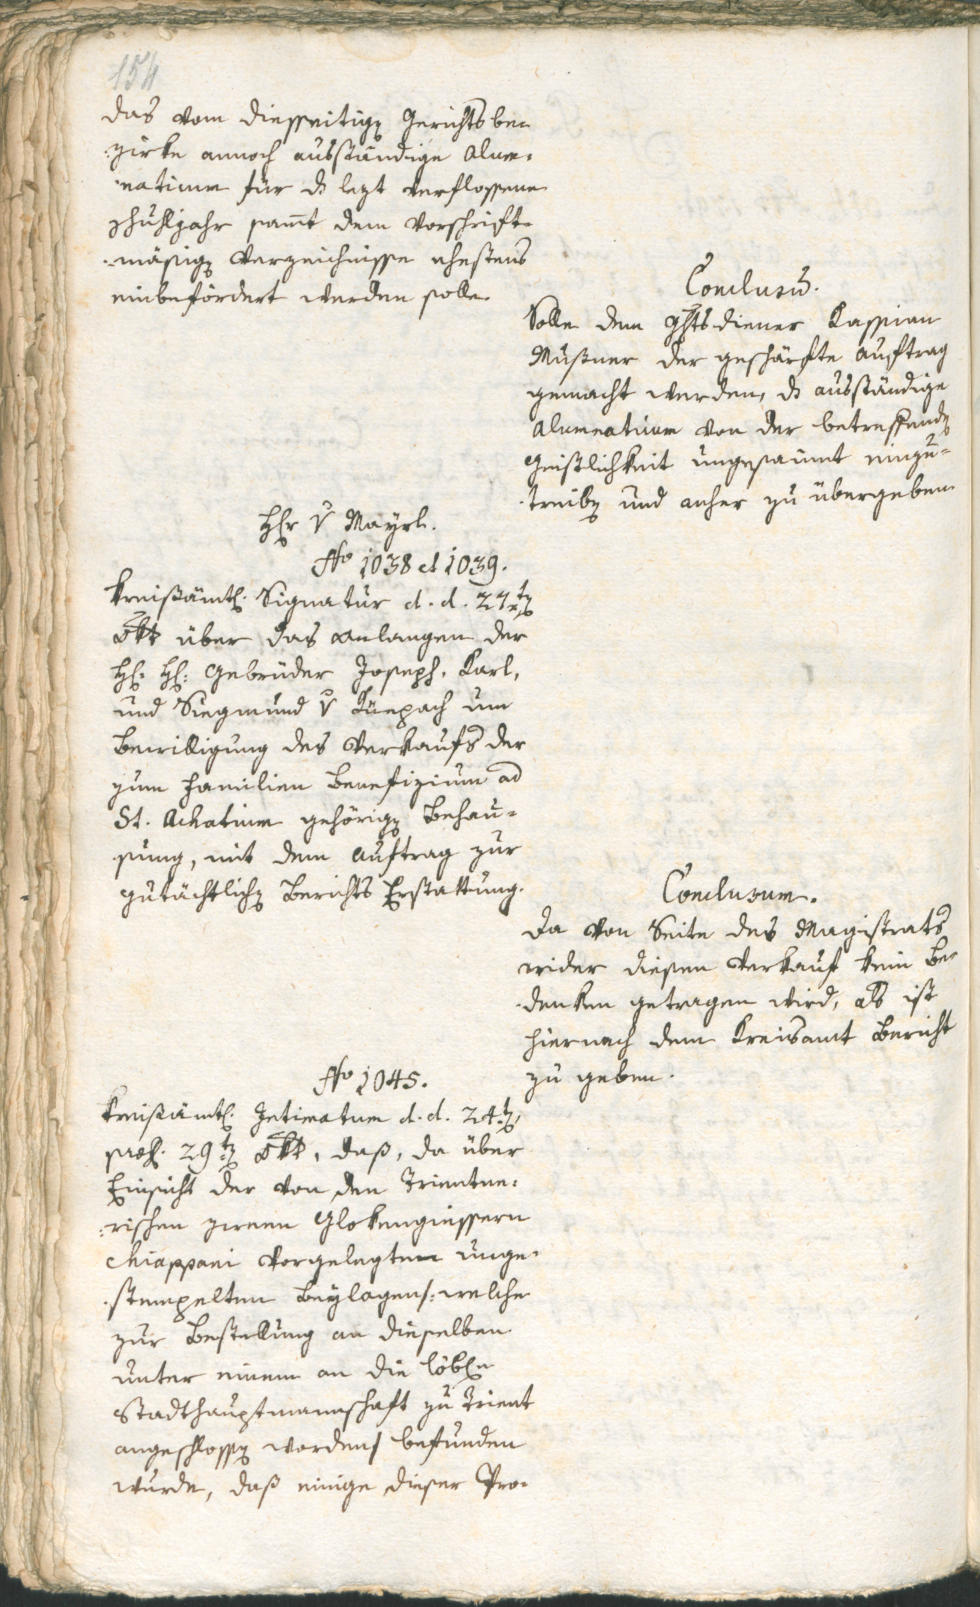 154
das vom diesseitigen Gerichtsbe-
zirke annoch ausständige Alum-
natium für ds lezt verflossene
Schuljahr samt dem Vorschrift-
mäßigen Verzeichnisse ehestens
einbefördert werden solle.
Conclusum.
Solle dem Ghtsdiener Kassian
Mußner der geschärfte Auftrag
gemacht werden, ds ausständige
Alumnatium von der betreffenden
Geistlichkeit ungesaumt einzu-
treiben und anher zu übergeben
Hr v Mayrl.
No 1038 et 1039.
Kreisämtl. Signatur d. d. 27ten
8br über das Anlangen der
H: H: Gebrüder Joseph, Karl,
und Siegmund v Küepach um
Bewilligung des Verkaufs der
zum Familien Benefizium ad
St. Achatium gehörigen Behau-
sung, mit dem Auftrag zur
gutächtlichen Berichts Erstattung.
Conclusum.
Da von Seite des Magistrats
wider diesen Verkauf kein Be-
denken getragen wird, als ist
hiernach dem Kreisamt Bericht
zu geben.
No 1045.
Kreisämtl. Intimatum d. d. 24ten
praes. 29ten 8br, daß, da über
Einsicht der von den Trientne-
rischen zween Glokengiessern
Chiappani vorgelegten unge-
stempelten Beylagen /: welche
zur Bestellung an dieselben
unter einem an die löbln
Stadthauptmannschaft zu Trient
angeschlossen worden / befunden
wurde, daß einige dieser Pro-